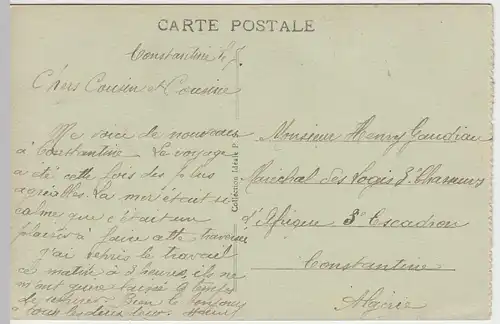 CARTE POSTALE
Constantine
Chers Cousin et Cousine
Me voici de nouveau
à Constantine Le voyage
a été cette fois des plus
agréables. La mer était si
calme que c'était un
plaisir à faire cette traversée
j'ai repris le travail
ce matin à 3 heures, ils ne
m'ont que laissé
Bien le bonjour
à tous les deux
Collection Idéale P.
Monsieur Henry
Maréchal des Logis 3e Chasseurs
d'Afrique 3e Escadron
Constantine
Algérie